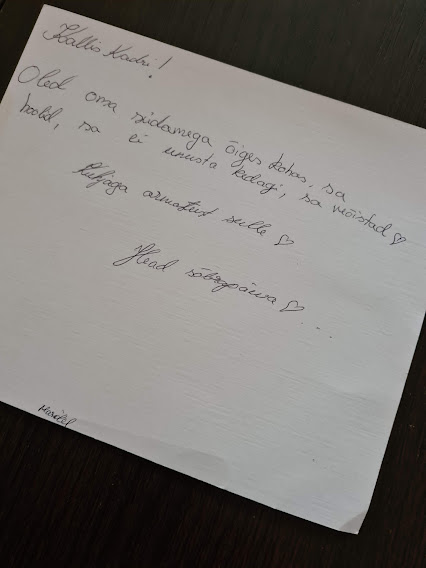 Kallis Kadri!
Oled oma südamega õiges kohas, sa
hoolid, sa ei unusta kedagi, sa mõistad ♡
Küljaga armastust sulle ♡
Head sõbrapäeva ♡...